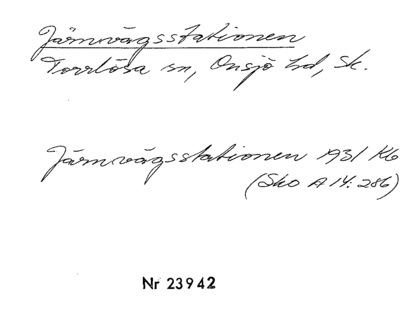 Järnvägsstationen
Torrlösa sn, Onsjö hd, Sk.
Järnvägsstationen 1931 Kb
(Sko A 14: 286)
Nr 23942